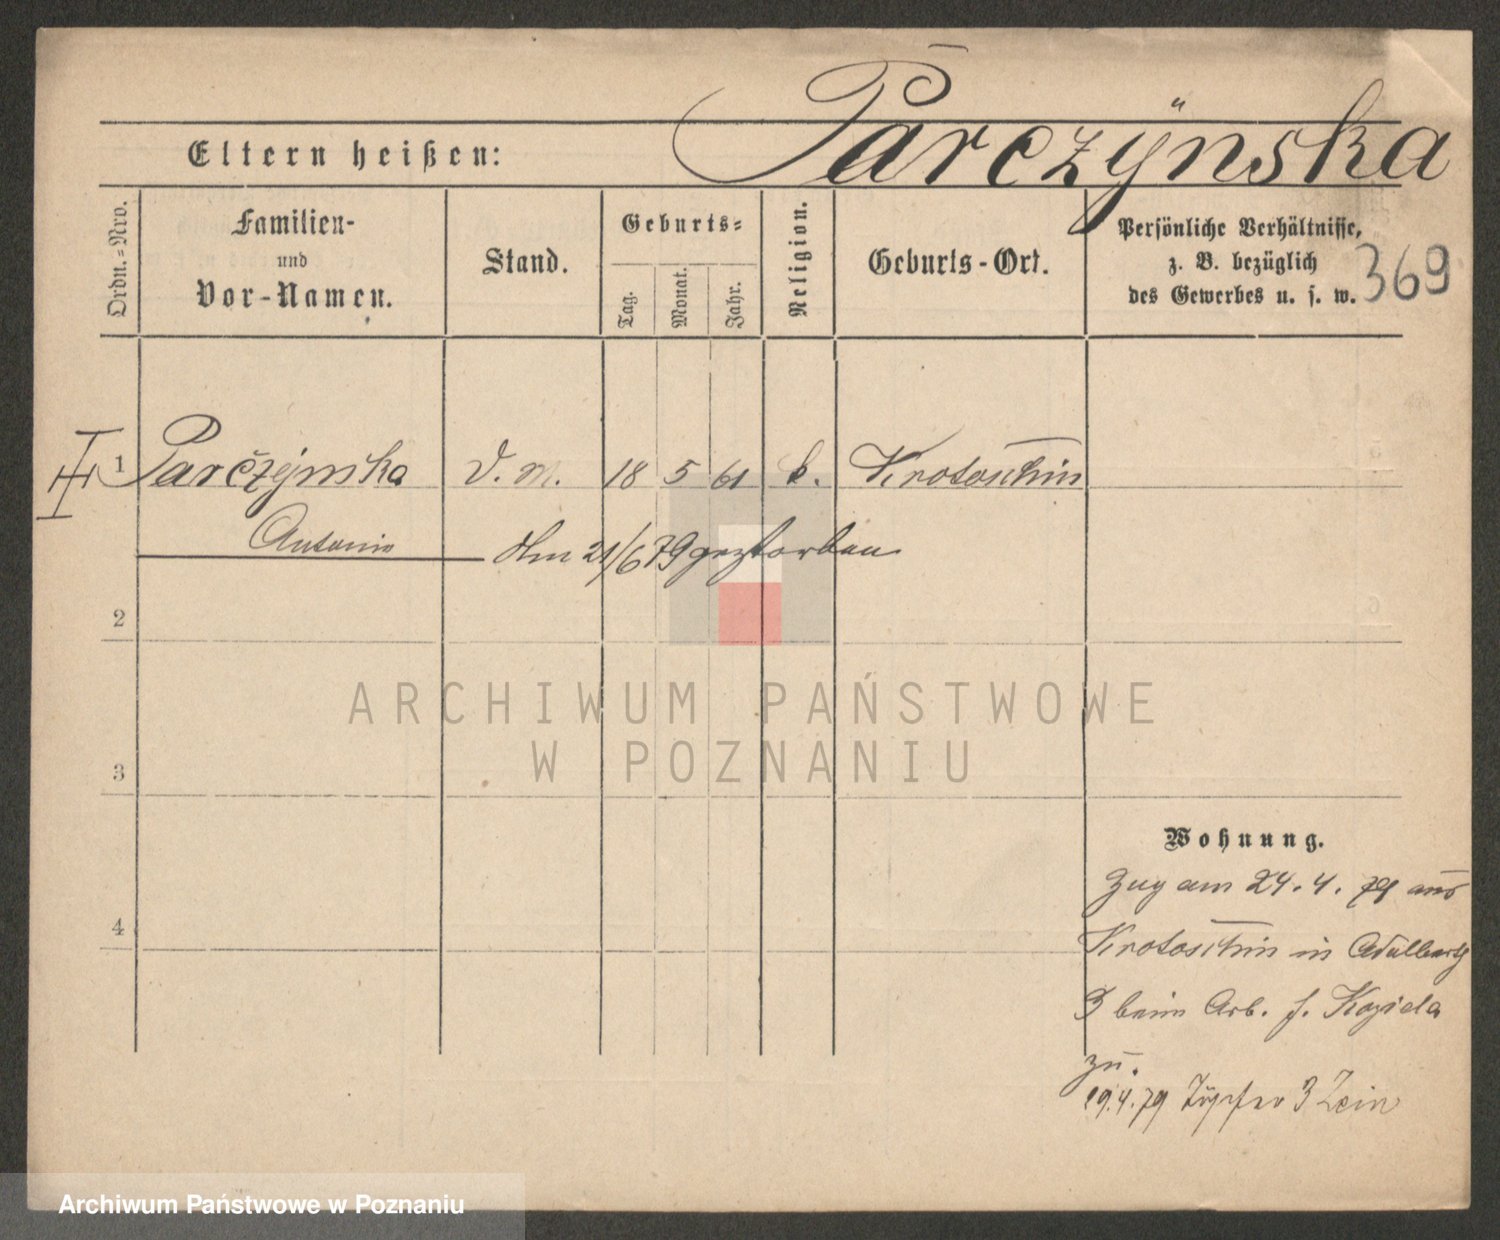 Parczÿnska
Eltern heißen:
Ordn.=Nro.
Familien-
und
Vor-Namen.
Stand.
Geburts=
Tag.
Monat.
Jahr.
Religion.
Geburts-Ort.
Persönliche Verhältnisse,
z. B. bezüglich
des Gewerbes u. s. w.
369
1 Parčzejnska D. M. 18 5 61 k. Krotoschin
Antonie Am 21/6 79 gestorben
2
ARCHIWUM PAŃSTWOWE
W POZNANIU
3
Wohnung.
Zug am 24. 4. 79 aus
4
Krotoschin in Adalbertg
3 beim Arb. f. Koziela
zu.
29.4.79 Töpfer 3
Archiwum Państwowe w Poznaniu